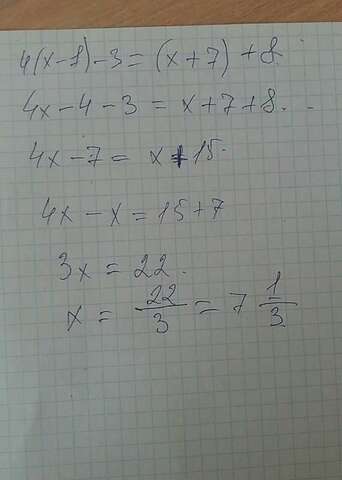 4(x-1)-3=(x+7)+8
4x-4-3=x+7+8.
4x-7=x+15.
4x-x=15+7
3x=22.
x=22/3=7 1/3